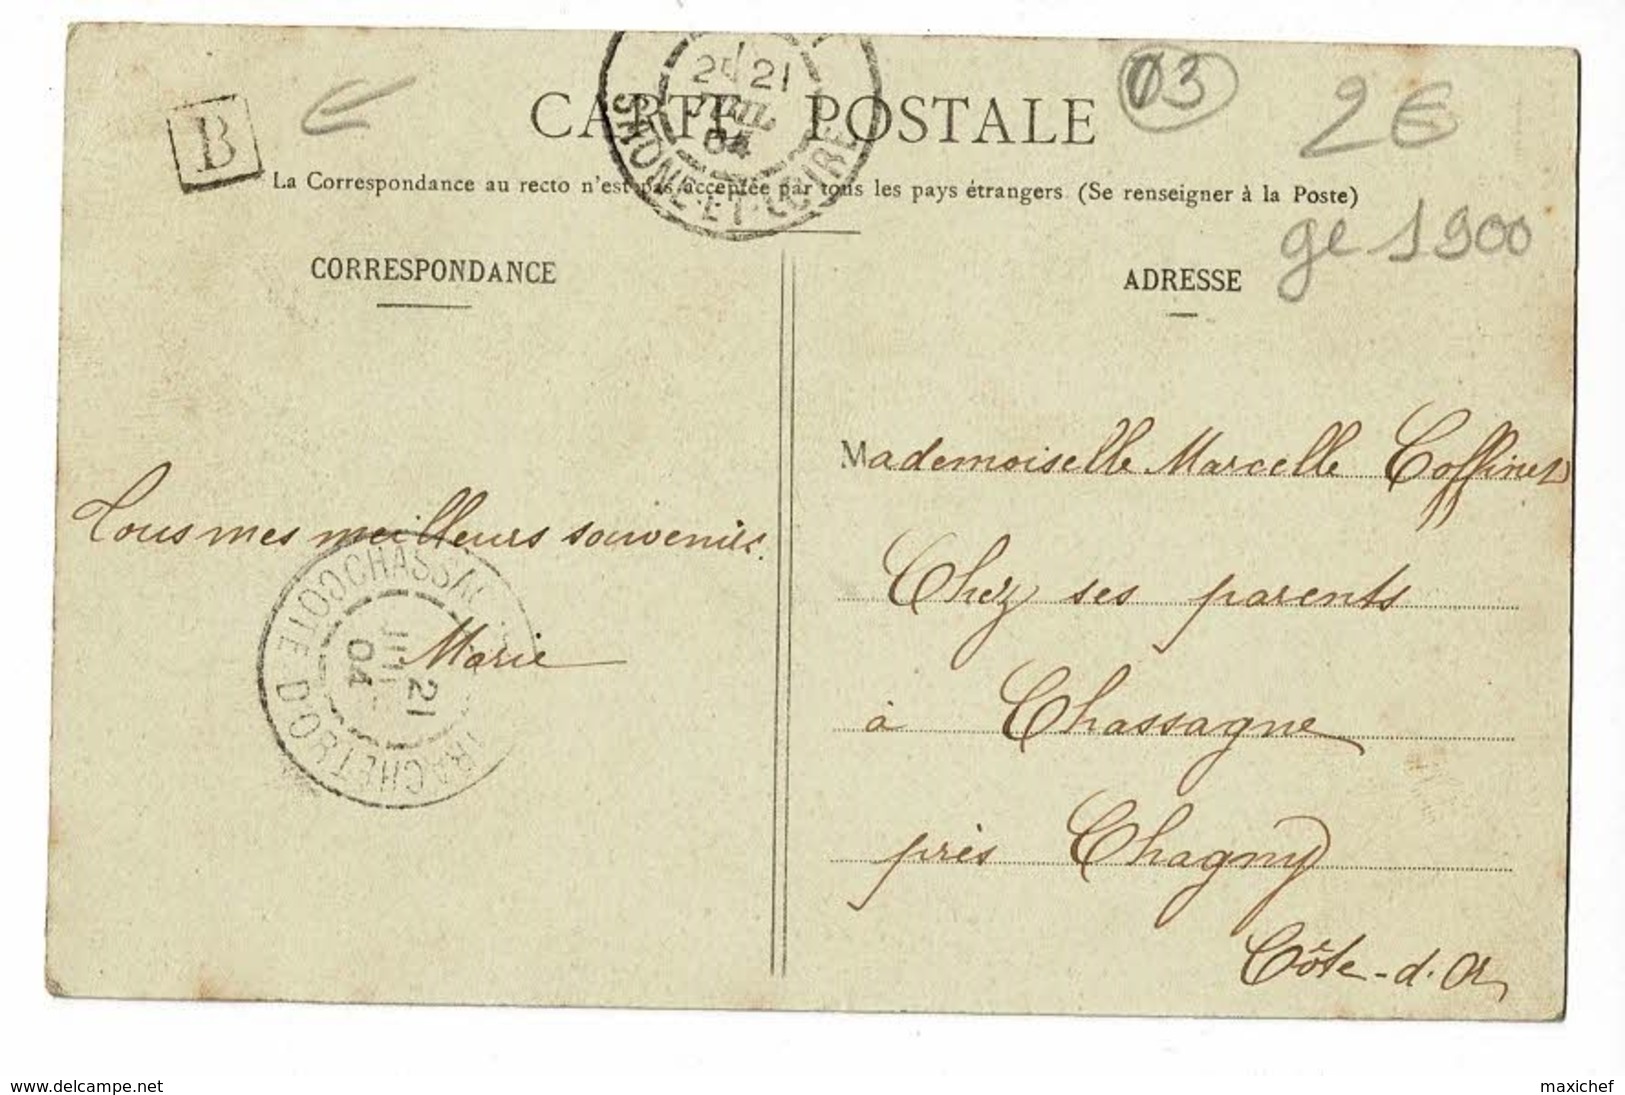 B
CARTE POSTALE
03
2€
La Correspondance au recto n'est pas acceptée par tous les pays étrangers (Se renseigner à la Poste)
21
04
SAONE-ET-LOIRE
ge 1900
CORRESPONDANCE
ADRESSE
Mademoiselle Marcelle Coffinet
Tous mes meilleurs souvenirs.
Chez ses parents
Marie
à Chassagne
près Chagny
Côte-d'Or
21
JUIL
04
COTE D'OR
www.delcampe.net
maxichef